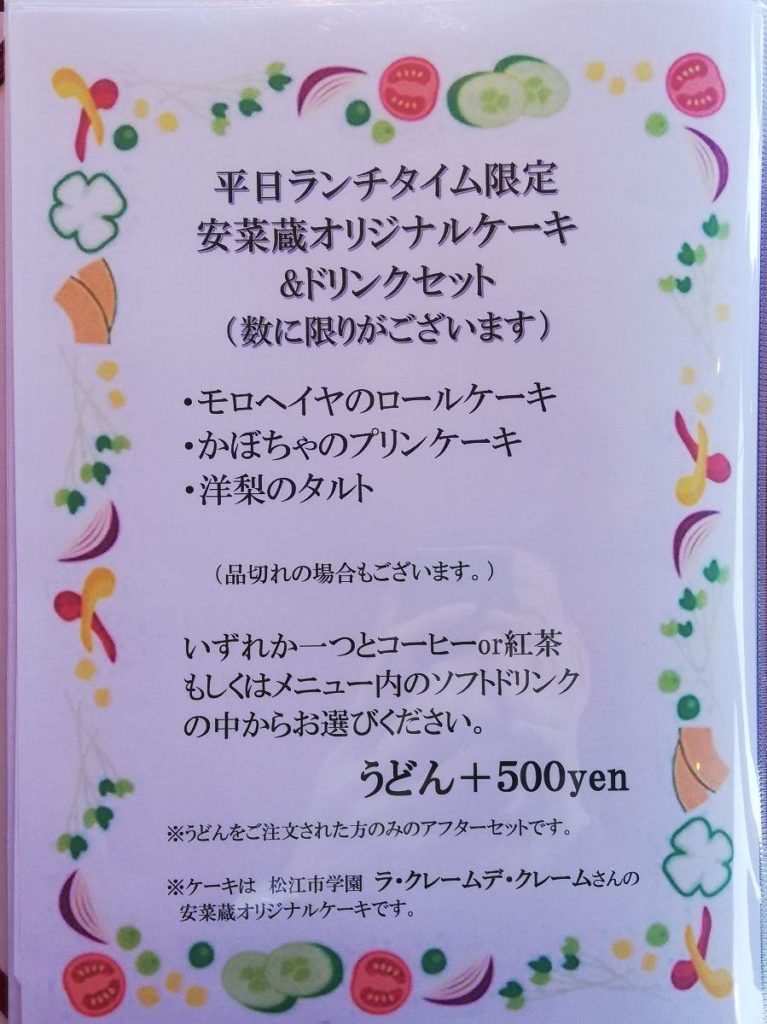 平日ランチタイム限定
安菜蔵オリジナルケーキ
&ドリンクセット
（数に限りがございます）
・モロヘイヤのロールケーキ
・かぼちゃのプリンケーキ
・洋梨のタルト
（品切れの場合もございます。）
いずれか一つとコーヒーor紅茶
もしくはメニュー内のソフトドリンク
の中からお選びください。
うどん＋500yen
※うどんをご注文された方のみのアフターセットです。
※ケーキは 松江市学園 ラ・クレームデ・クレームさんの
安菜蔵オリジナルケーキです。